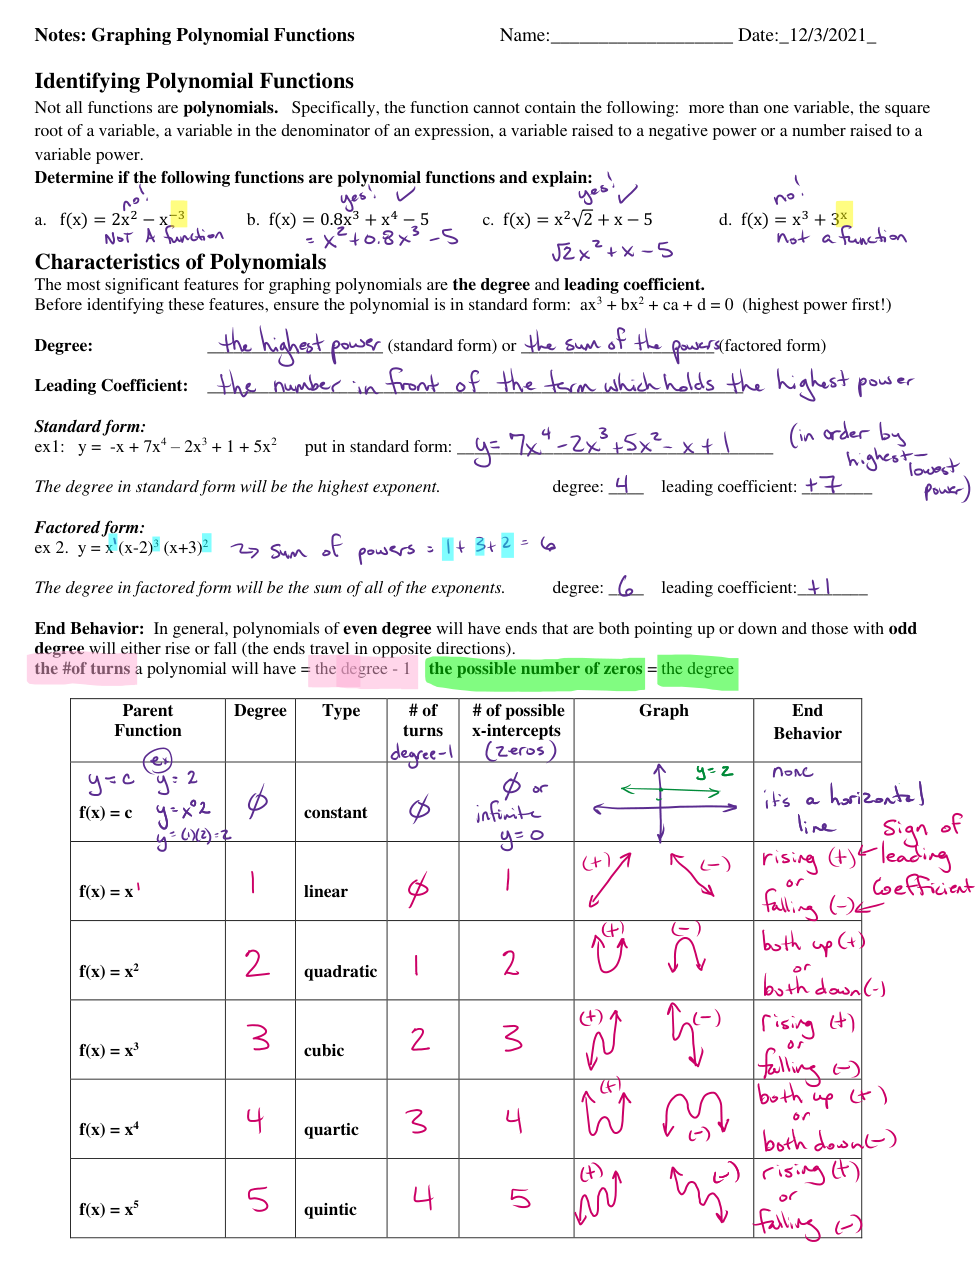 Notes: Graphing Polynomial Functions Name:___________________ Date:_12/3/2021_
Identifying Polynomial Functions
Not all functions are polynomials. Specifically, the function cannot contain the following: more than one variable, the square
root of a variable, a variable in the denominator of an expression, a variable raised to a negative power or a number raised to a
variable power.
Determine if the following functions are polynomial functions and explain:
no! yes! ✓ yes! ✓ no!
a. f(x) = 2x² − x⁻³ b. f(x) = 0.8x³ + x⁴ − 5 c. f(x) = x²√2 + x − 5 d. f(x) = x³ + 3ˣ
NOT A function = x² + 0.8x³ − 5 √2x² + x − 5 not a function
Characteristics of Polynomials
The most significant features for graphing polynomials are the degree and leading coefficient.
Before identifying these features, ensure the polynomial is in standard form: ax³ + bx² + ca + d = 0 (highest power first!)
Degree: the highest power (standard form) or the sum of the powers (factored form)
Leading Coefficient: the number in front of the term which holds the highest power
Standard form:
ex1: y = -x + 7x⁴ – 2x³ + 1 + 5x² put in standard form: y = 7x⁴ − 2x³ + 5x² − x + 1 (in order by
highest–
lowest
power)
The degree in standard form will be the highest exponent. degree: 4 leading coefficient: +7
Factored form:
ex 2. y = x¹(x-2)³ (x+3)² → sum of powers = 1 + 3 + 2 = 6
The degree in factored form will be the sum of all of the exponents. degree: 6 leading coefficient: +1
End Behavior: In general, polynomials of even degree will have ends that are both pointing up or down and those with odd
degree will either rise or fall (the ends travel in opposite directions).
the #of turns a polynomial will have = the degree - 1 the possible number of zeros = the degree
Parent Function Degree Type # of turns # of possible x-intercepts Graph End Behavior
degree-1 (zeros)
ex
y = c y = 2
f(x) = c y = x⁰2 ∅ constant ∅ ∅ or infinite y = 0 y = 2 none it's a horizontal line
y = (1)(2) = 2
sign of leading coefficient
f(x) = x¹ 1 linear ∅ 1 (+) (−) rising (+) or falling (−)
f(x) = x² 2 quadratic 1 2 (+) (−) both up (+) or both down (−)
f(x) = x³ 3 cubic 2 3 (+) (−) rising (+) or falling (−)
f(x) = x⁴ 4 quartic 3 4 (+) (−) both up (+) or both down (−)
f(x) = x⁵ 5 quintic 4 5 (+) (−) rising (+) or falling (−)